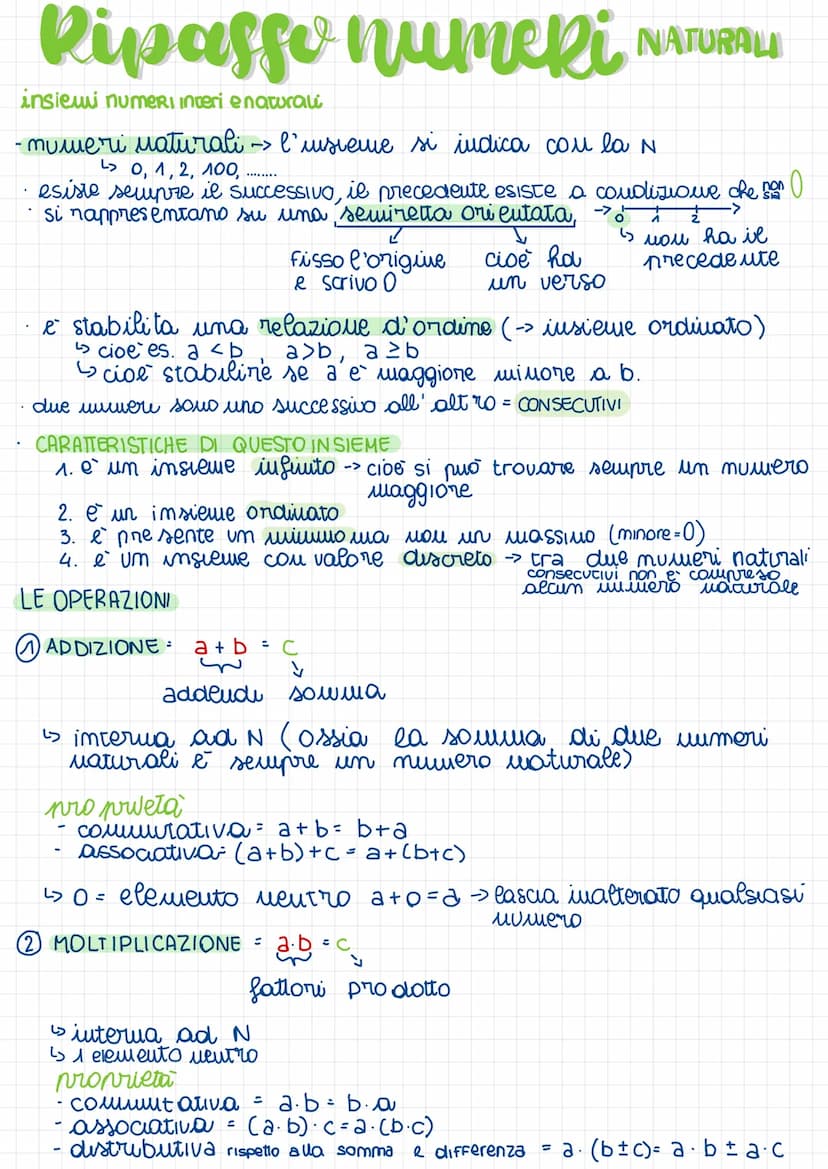 Ripasso numeri NATURALI
insiemi numeri interi e naturali
- numeri naturali -> l'insieme si indica con la N
↳ 0, 1, 2, 100, ........
· esiste sempre il successivo, il precedente esiste a condizione che non sia 0
· si rappresentano su una semiretta orientata, -> 0 1 2
↳ non ha il precedente
fisso l'origine e scrivo 0
cioè ha un verso
· è stabilita una relazione d'ordine (-> insieme ordinato)
↳ cioè es. a < b, a > b, a ≥ b
↳ cioè stabilire se a è maggione minore a b.
· due numeri sono uno successivo all'altro = CONSECUTIVI
· CARATTERISTICHE DI QUESTO INSIEME
1. è un insieme infinito -> cioè si può trovare sempre un numero
maggiore
2. è un insieme ordinato
3. è presente un minimo ma non un massimo (minore = 0)
4. è un insieme con valore discreto -> tra due numeri naturali
consecutivi non è compreso
alcun numero naturale
LE OPERAZIONI
① ADDIZIONE = a + b = c
addendi somma
↳ interna ad N (ossia la somma di due numeri
naturali è sempre un numero naturale)
proprietà
- commutativa = a + b = b + a
- associativa = (a+b)+c = a+(b+c)
↳ 0 = elemento neutro a+0=a -> lascia inalterato qualsiasi
numero
② MOLTIPLICAZIONE = a·b = c
fattori prodotto
↳ interna ad N
↳ 1 elemento neutro
proprietà
- commutativa = a·b = b·a
- associativa = (a·b)·c = a·(b·c)
- distributiva rispetto alla somma e differenza = a·(b±c) = a·b ± a·c